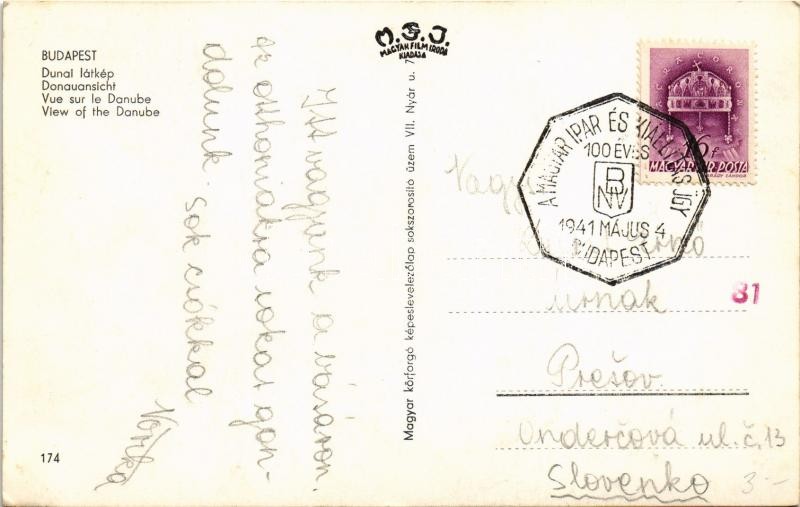 BUDAPEST
Dunai látkép
Donauansicht
Vue sur le Danube
View of the Danube
M.F.I.
MAGYAR FILM IRODA
KIADÁSA
Itt vagyunk a vásáron.
az otthoniakra sokat gon-
dolunk. Sok csókkal
174
Magyar körforgó képeslevelezőlap sokszorosító üzem VII. Nyár u. 7
A MAGYAR IPAR ÉS KIÁLLÍTÁSÜGY
100 ÉVES
BNV
1941 MÁJUS 4
BUDAPEST
MAGYAR KIR. POSTA
Ernő
Úrnak
81
Prešov.
Onderčová ul. č. 13
Slovenko
3-